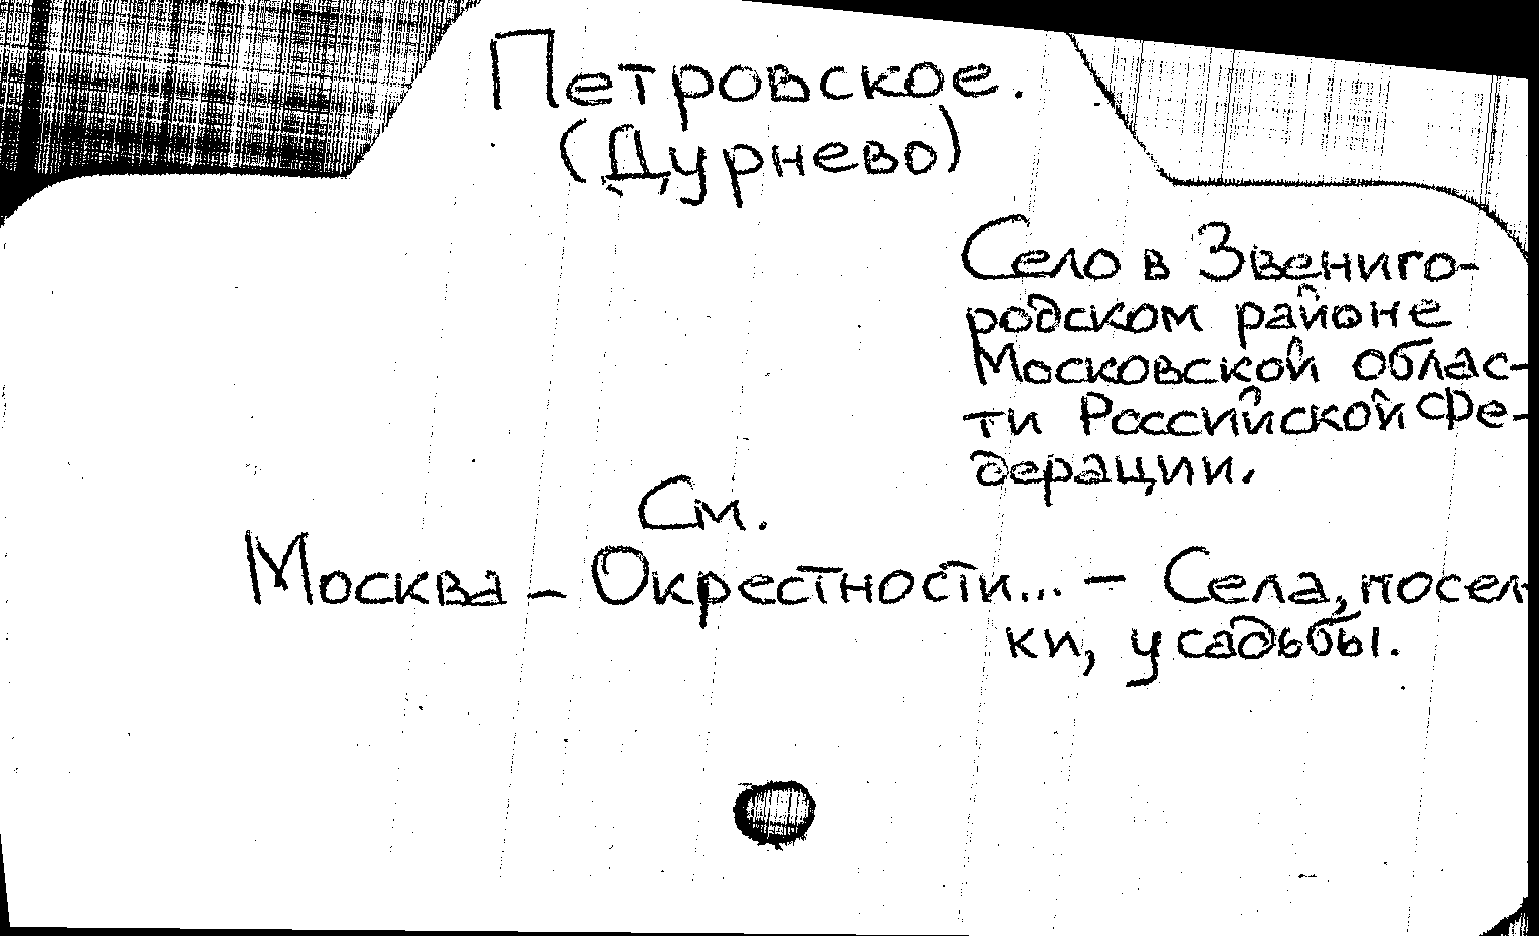 Петровское.
(Дурнево)
Село в Звениго-
родском районе
Московской облас-
ти Российской Фе-
дерации.
См.
Москва – Окрестности... – Села, посел-
ки, усадьбы.